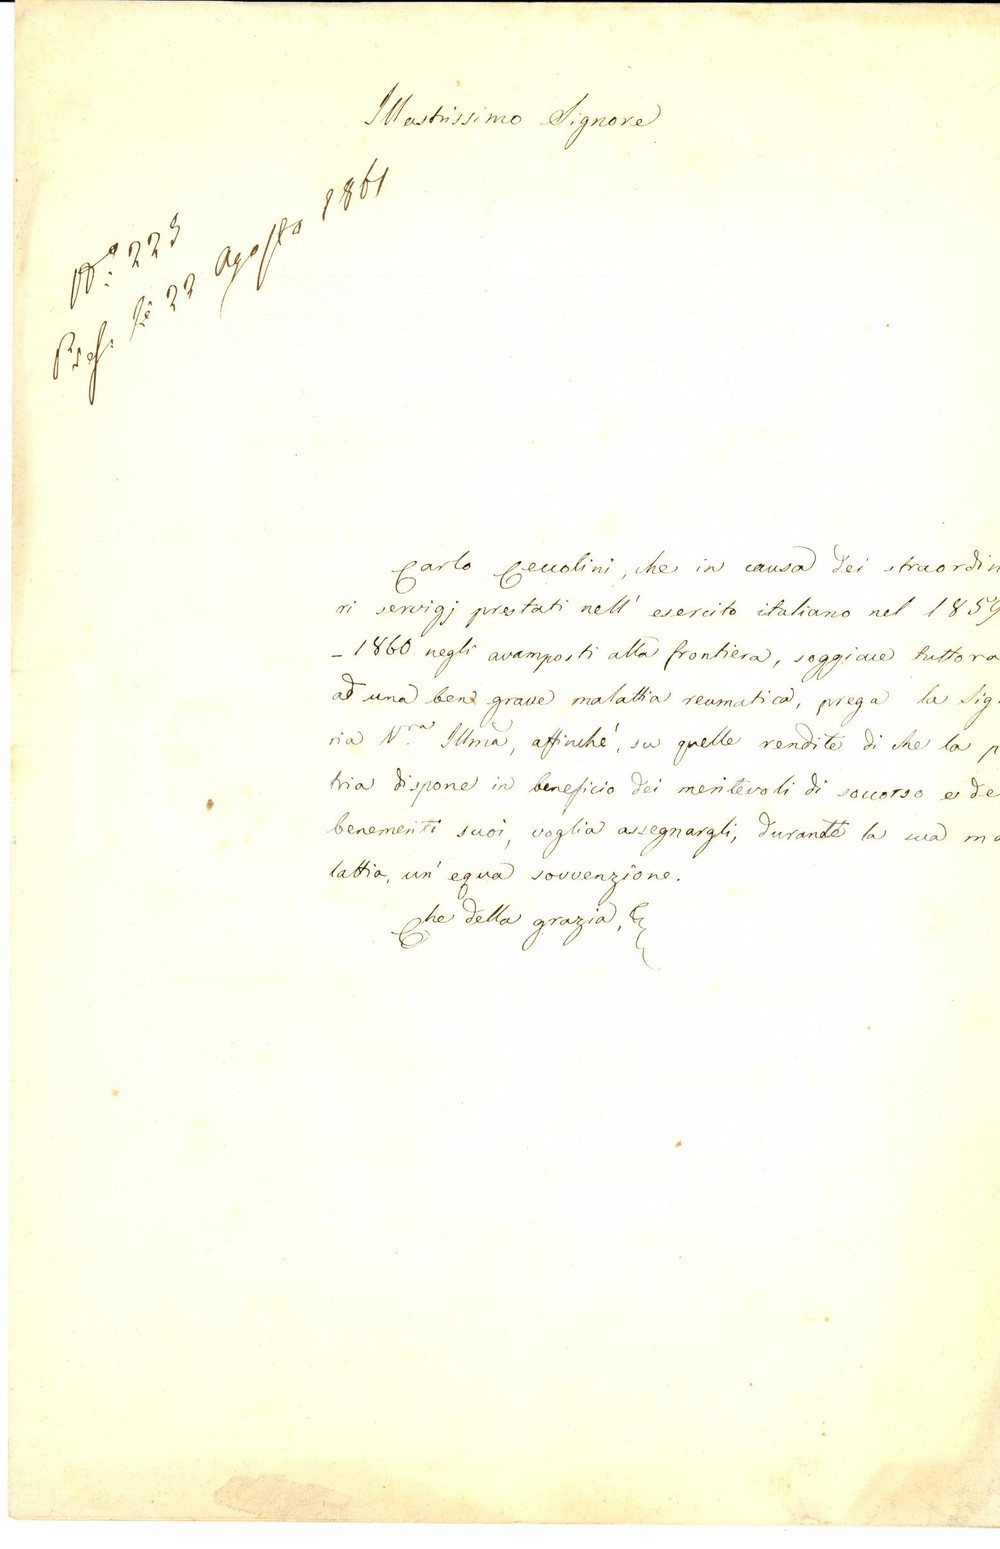 Illustrissimo Signore
N.º 223
Pref. li 22 Agosto 1861
Carlo Ceccolini, che in causa dei straordin
ri servigj prestati nell' esercito italiano nel 1859
– 1860 negli avamposti alla frontiera, soggiace tuttora
ad una ben grave malattia reumatica, prega la Sig.
ria V.ra Illma, affinché, su quelle rendite di che la p
tria dispone in beneficio dei meritevoli di soccorso e de
benemeriti suoi, voglia assegnargli, durante la sua ma
lattia, un' equa sovvenzione.
Che della grazia,